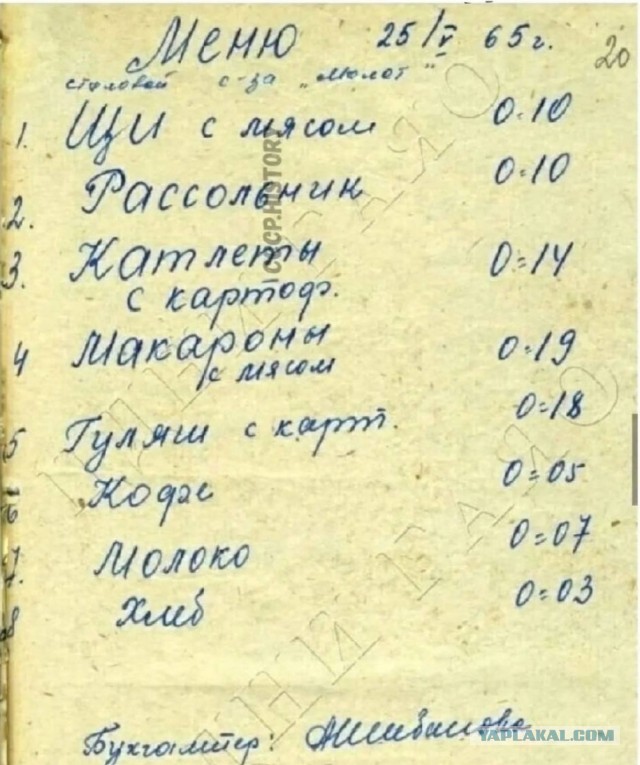 20
Меню 25/V 65г.
столовой с-за „Молот"
1. Щи с мясом 0=10
2. Рассольник 0=10
3. Катлеты 0=14
с картоф.
4 Макароны 0=19
с мясом
5 Гуляш с карт. 0=18
6 Кофе 0=05
7. Молоко 0=07
8 Хлеб 0=03
Бухгалтер:
CCCP.HISTORY
YAPLAKAL.COM